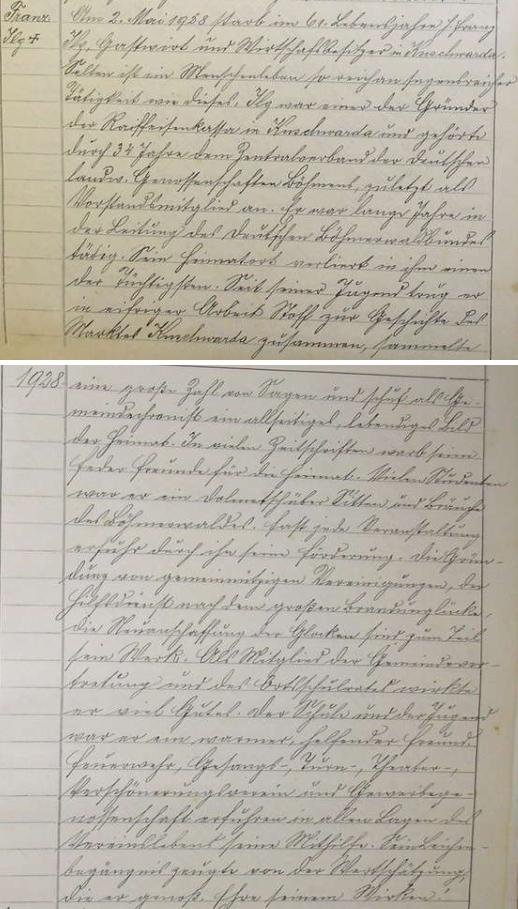 Franz
Ilg +
Am 2. Mai 1928 starb im 61. Lebensjahre H. Franz
Ilg, Gastwirt und Wirtschaftsbesitzer in Kuschwarda.
Selten ist ein Menschenleben so reich an segensreicher
Tätigkeit wie dieses. Ilg war einer der Gründer
der Raiffeisenkassa in Kuschwarda und gehörte
durch 34 Jahre dem Zentralverband der deutschen
landw. Genossenschaften Böhmens, zuletzt als
Vorstandsmitglied an. Er war lange Jahre in
der Leitung des Deutschen Böhmerwaldbundes
tätig. Sein Heimatort verliert in ihm einen
der Tüchtigsten. Seit seiner Jugend trug er
in eifriger Arbeit Stoff zur Geschichte des
Marktes Kuschwarda zusammen, sammelte
1928. eine große Zahl von Sagen und schuf als Ge-
meindechronist ein allseitiges, lebendiges Bild
der Heimat. In vielen Zeitschriften warb seine
Feder Freunde für die Heimat. Vielen Studenten
war er ein Dolmetsch über Sitten und Bräuche
des Böhmerwaldes. Fast jede Veranstaltung
erfuhr durch ihn seine Förderung. Die Grün-
dung von gemeinnützigen Vereinigungen, der
Hilfsdienst nach dem großen Brandunglücke,
die Neuanschaffung der Glocken sind zum Teil
sein Werk. Als Mitglied der Gemeindever-
tretung und des Ortsschulrates wirkte
er viel Gutes. Der Schule und der Jugend
war er ein warmer, helfender Freund.
Feuerwehr, Gesangs-, Turn-, Theater-,
Verschönerungsverein und Gewerbege-
nossenschaft erfuhren in allen Lagen des
Vereinslebens seine Mithilfe. Sein Leichen-
begängnis zeugte von der Wertschätzung,
die er genoß. Ehre seinem Wirken!